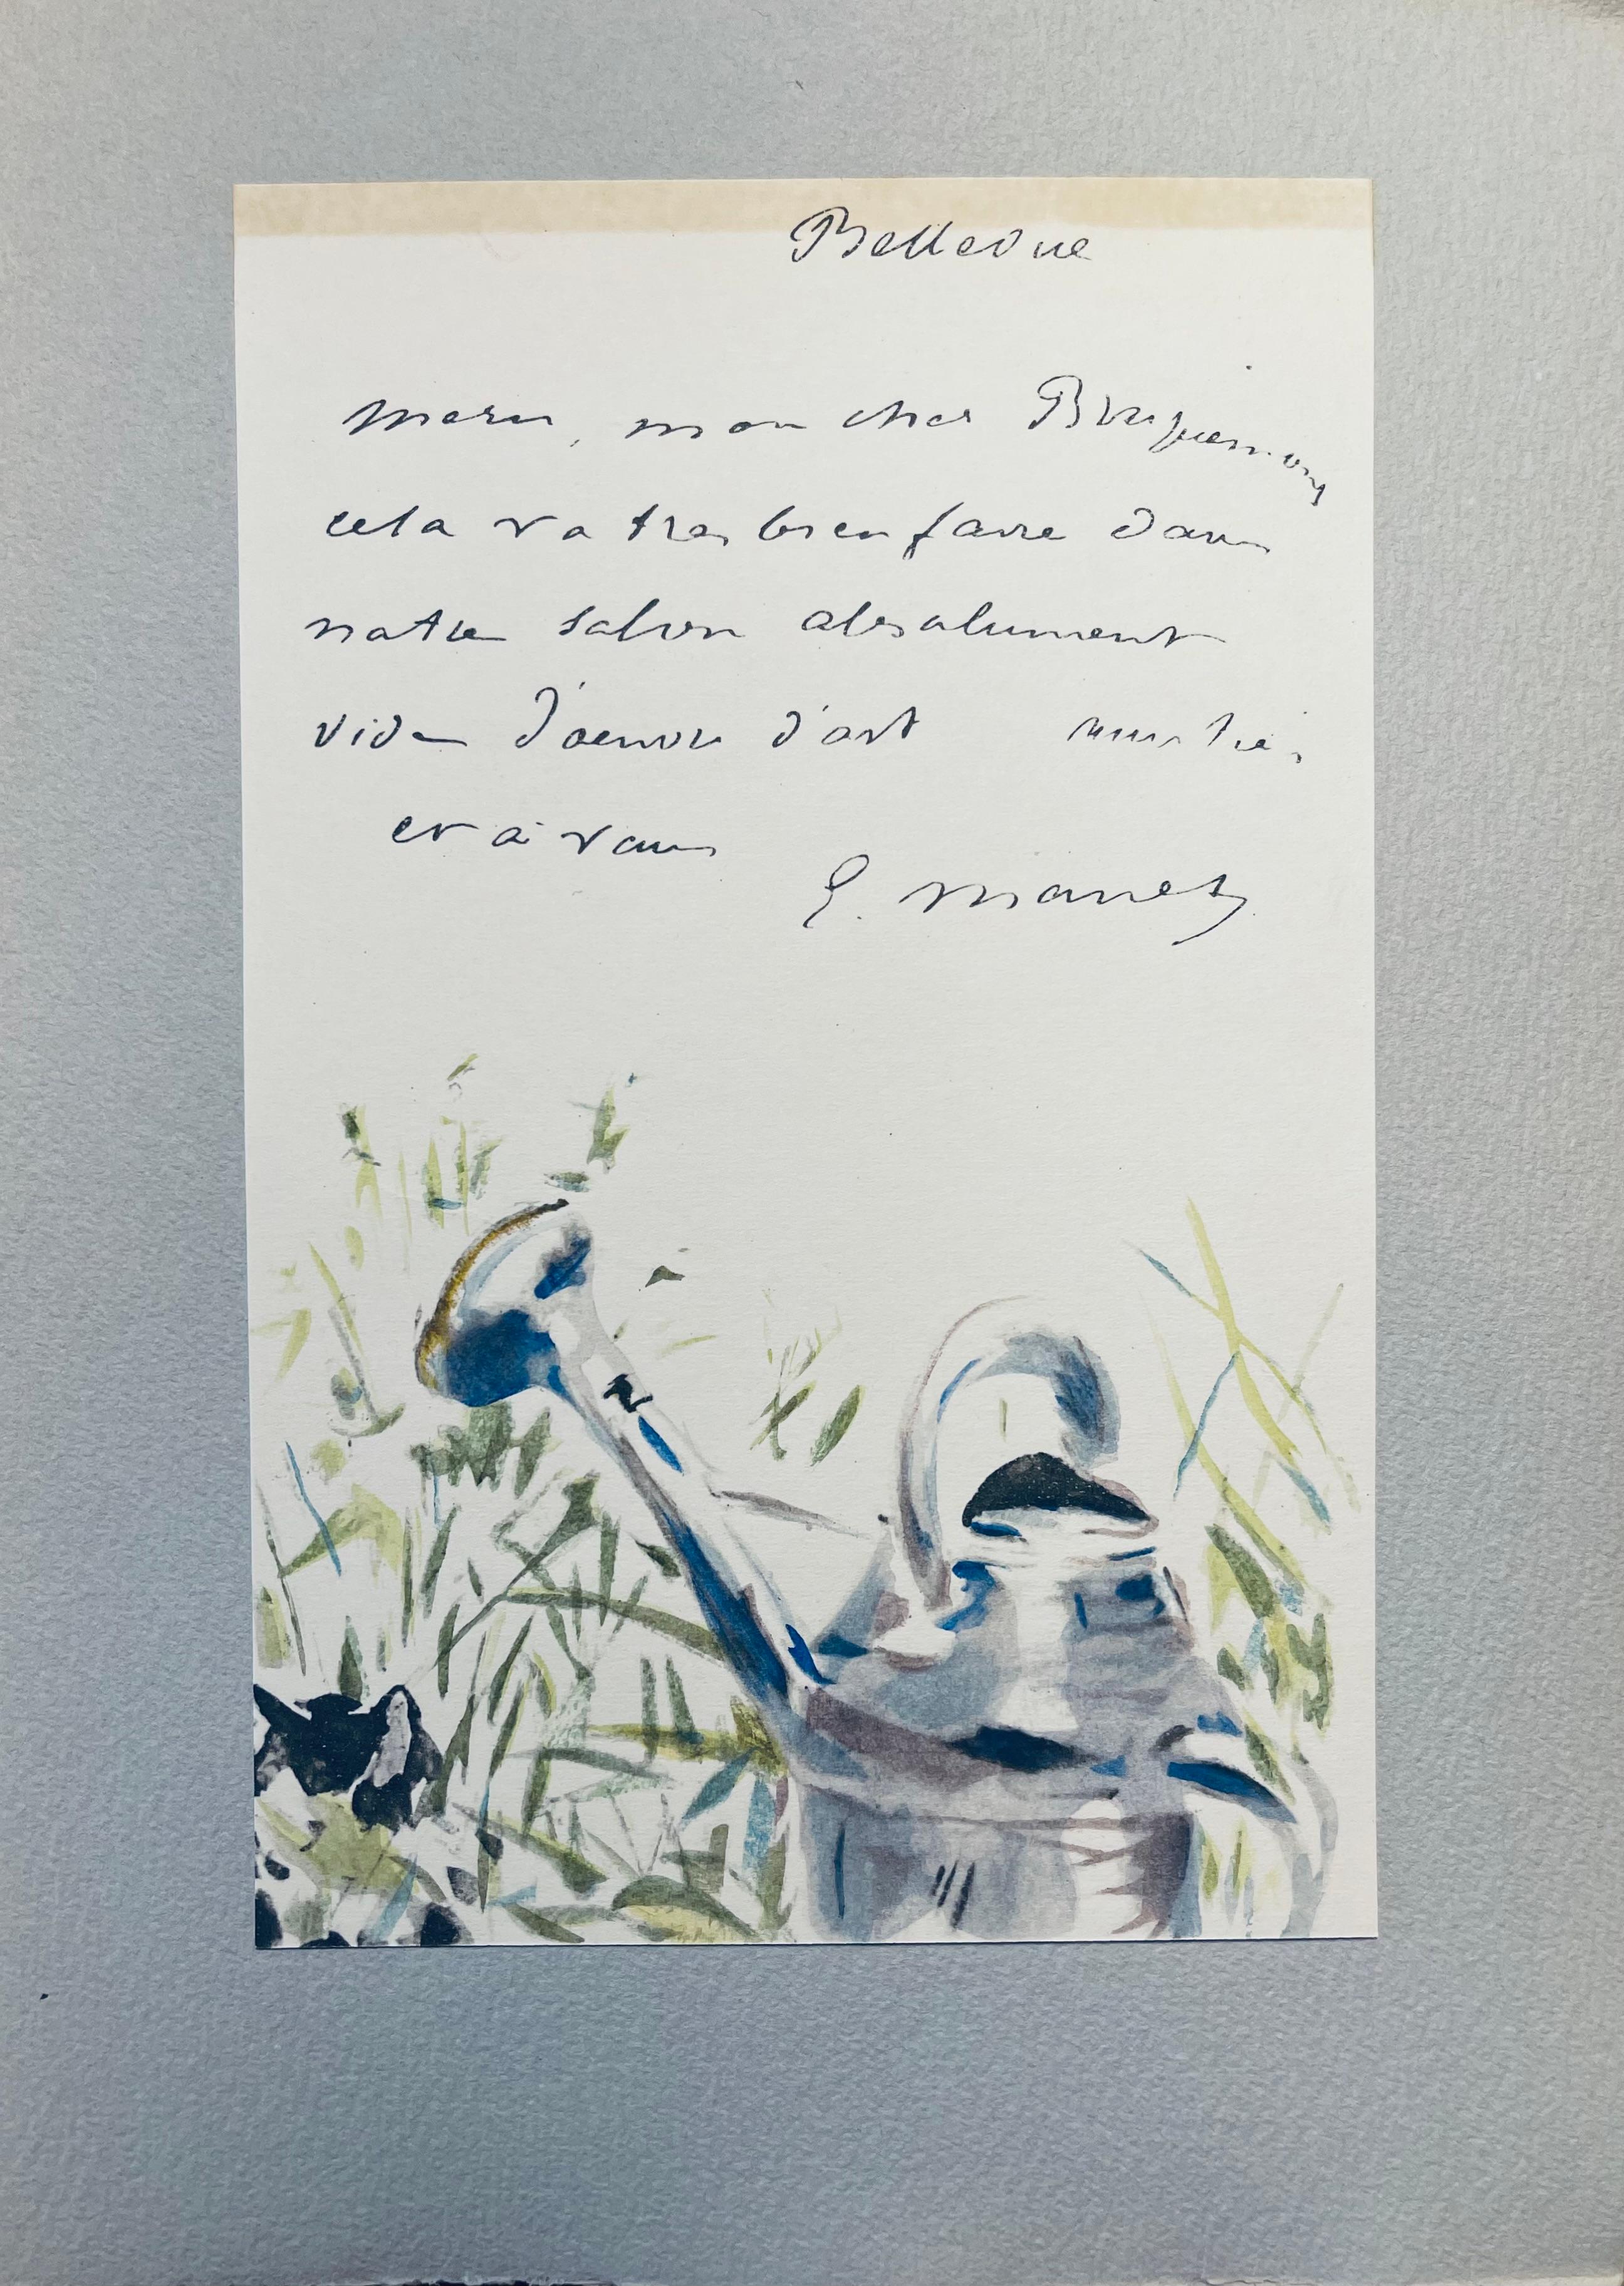 Bellevue
Merci, mon cher Bracquemond
cela va tres bien faire dans
notre salon absolument
vide d'oeuvre d'art
et à vous
E. Manet